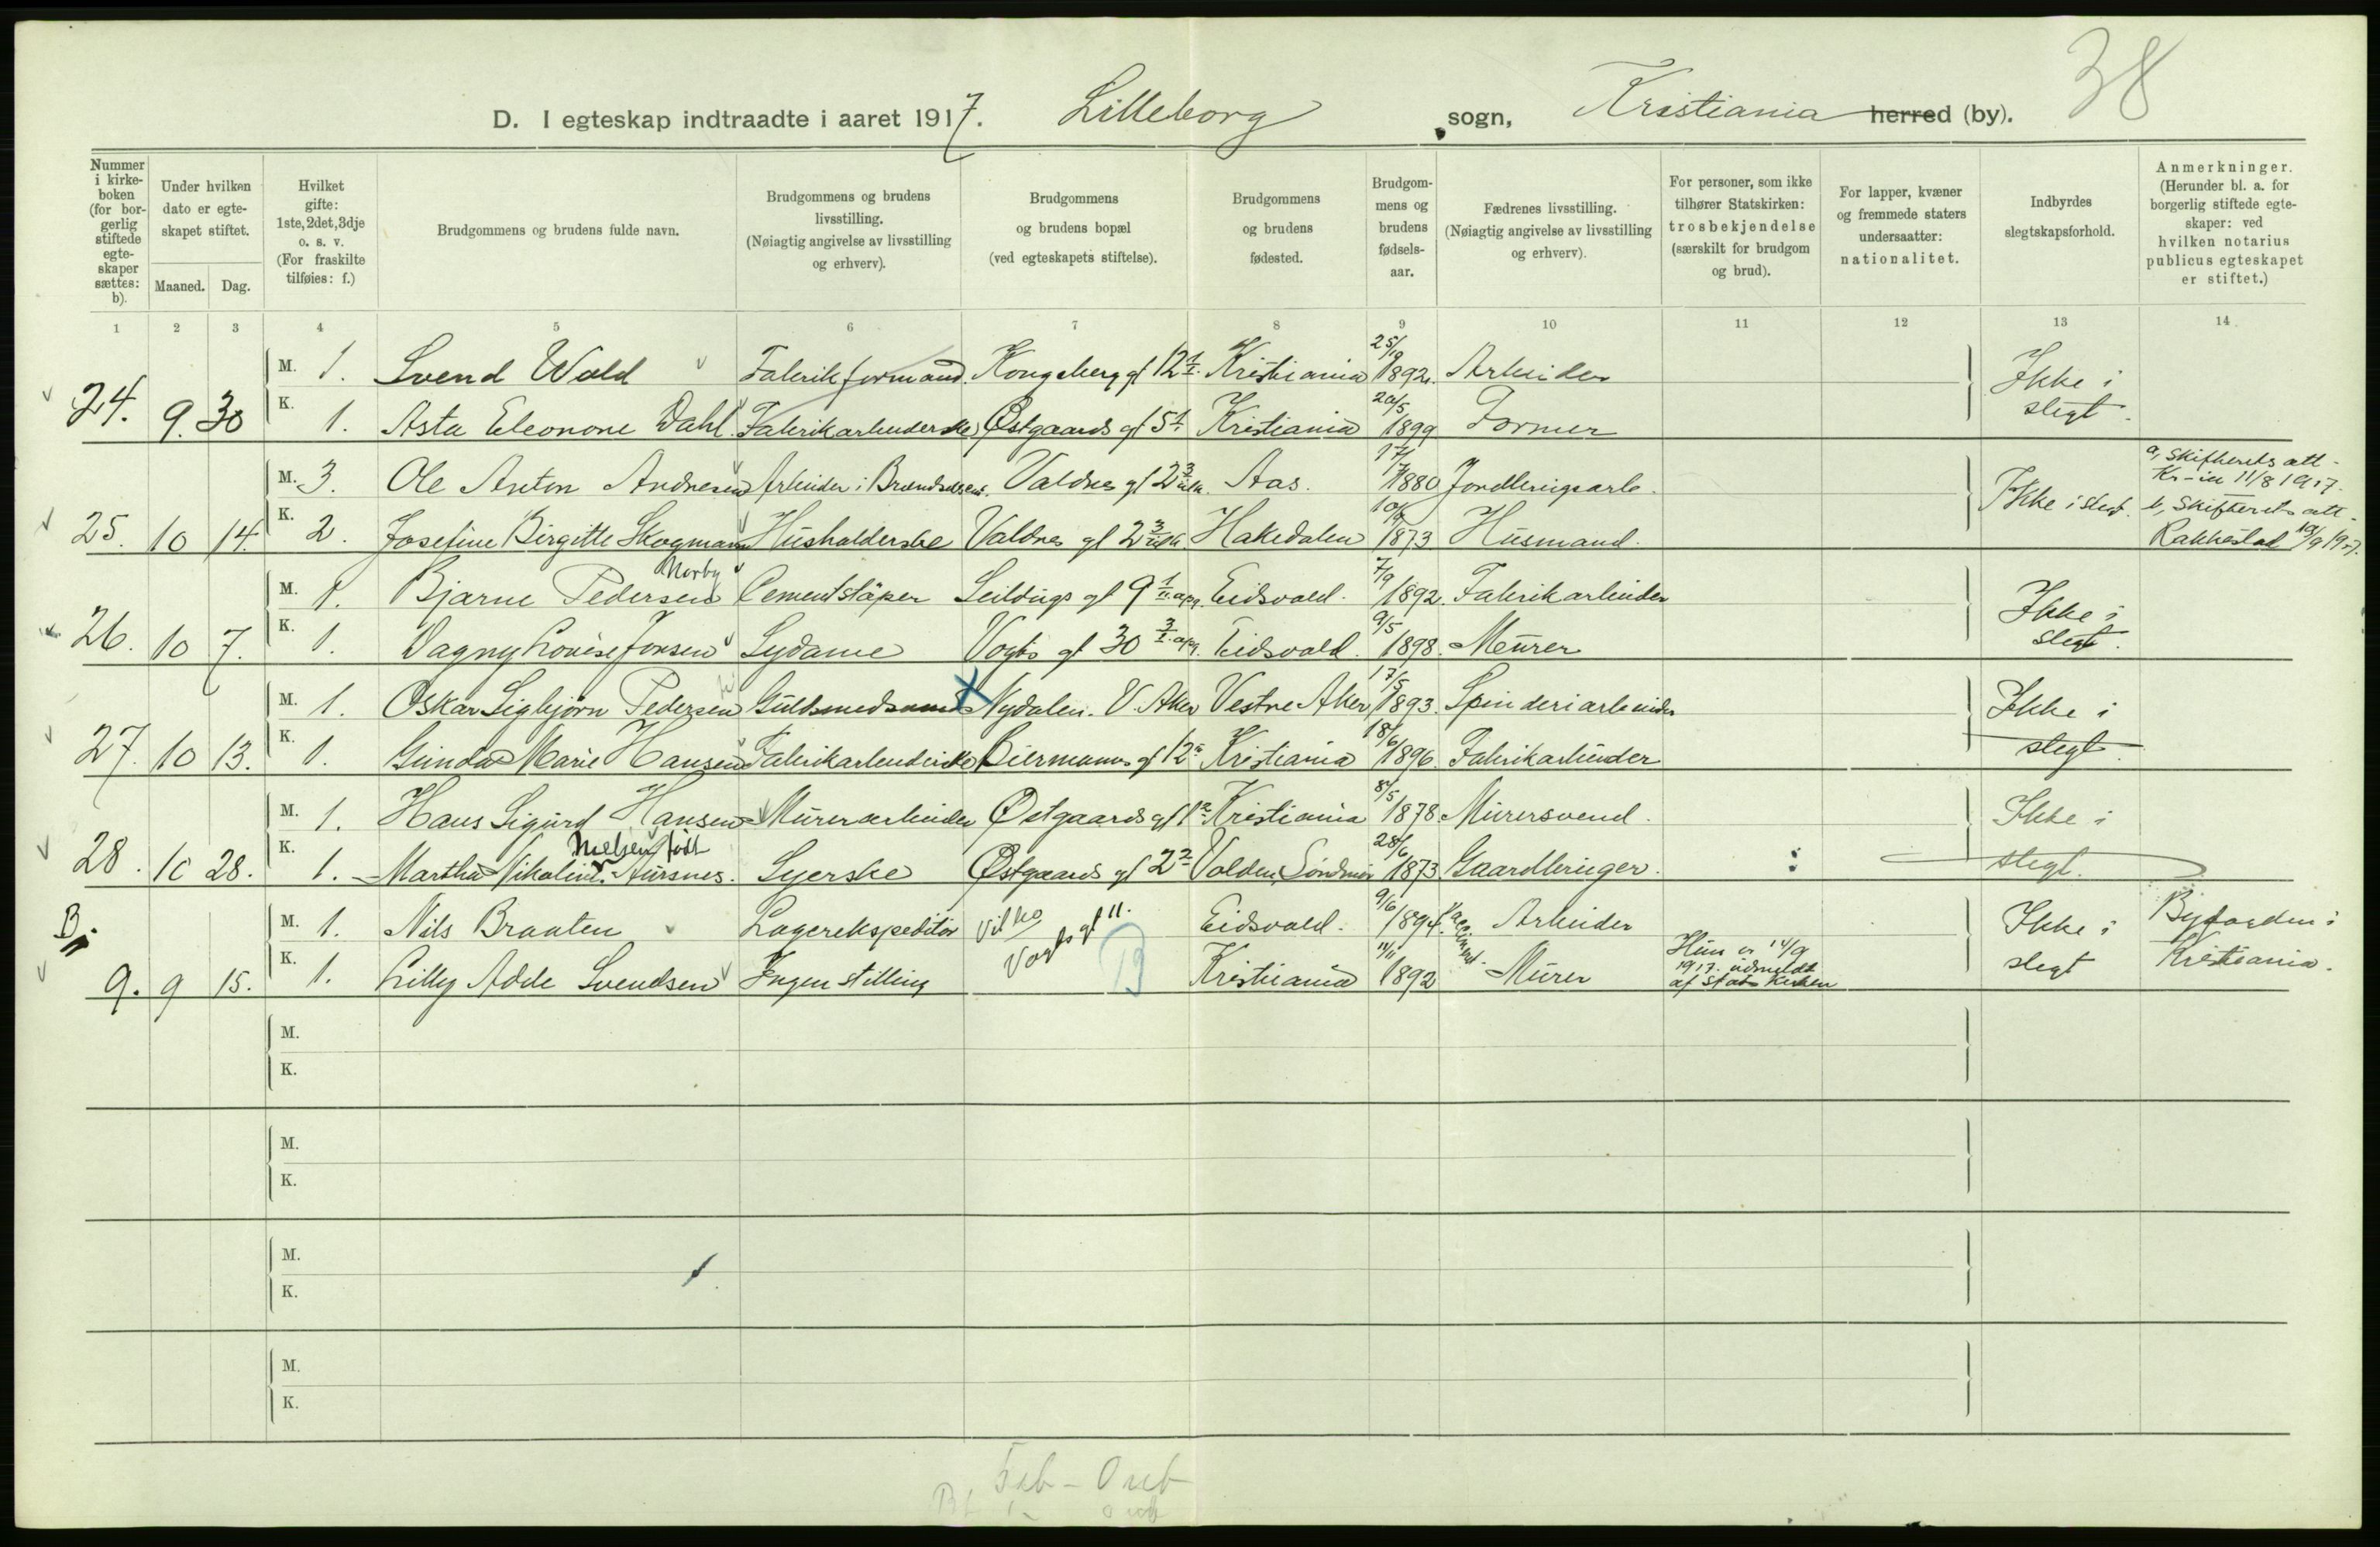 38
D. I egteskap indtraadte i aaret 1917. Lilleborg sogn, Kristiania herred (by).
Nummer i kirke-boken (for bor-gerlig stiftede egte-skaper sættes: b).
Under hvilken dato er egte-skapet stiftet.
Maaned. Dag.
Hvilket gifte: 1ste, 2det, 3dje o. s. v. (For fraskilte tilføies: f.)
Brudgommens og brudens fulde navn.
Brudgommens og brudens livsstilling. (Nøiagtig angivelse av livsstilling og erhverv).
Brudgommens og brudens bopæl (ved egteskapets stiftelse).
Brudgommens og brudens fødested.
Brudgom-mens og brudens fødsels-aar.
Fædrenes livsstilling. (Nøiagtig angivelse av livsstilling og erhverv).
For personer, som ikke tilhører Statskirken: trosbekjendelse (særskilt for brudgom og brud).
For lapper, kvæner og fremmede staters undersaatter: nationalitet.
Indbyrdes slegtskapsforhold.
Anmerkninger. (Herunder bl. a. for borgerlig stiftede egte-skaper: ved hvilken notarius publicus egteskapet er stiftet.)
1 2 3 4 5 6 7 8 9 10 11 12 13 14
M. 1. Svend Wold Fabrikformand. Kongsberg gt 12 1/I. Kristiania 25/10 1892. Arbeider Ikke i
24. 9. 30 K. 1. Asta Eleonore Dahl. Fabrikarbeiderske Østgaards gt 5 Kristiania 20/5 1899 Former slegt.
M. 3. Ole Anton Andresen Arbeider i Valdres gt 2 3 Aas. 17/7 1880 Jordbrugsarb. a, Skifterets att. Kr-ia 11/8 1917.
25. 10 14. K. 2. Josefine Birgitte Skogmann Husholderske Valdres gt 2 3 Hakedalen 1873 Husmand. Ikke i slegt. b, Skifterets att. Rakkestad 10/9 1917.
M. 1. Bjarne Pedersen Norby Cementstøper Seildugs gt 9 1/II. opg. Eidsvold. 7/9 1892. Fabrikarbeider Ikke i
26. 10 7. K. 1. Dagny Lovise Jonsen Sydame Vogts gt 30 3/I. opg. Eidsvold. 9/5 1898. Murer slegt.
M. 1. Oskar Sigbjørn Pedersen Guldsmedsvend Nydalen. V. Aker Vestre Aker 17/5 1893. Spinderiarbeider Ikke i
27. 10 13. K. 1. Gunda Marie Hansen Fabrikarbeiderske Biermanns gt 12 Kristiania 18/6 1896. Fabrikarbeider slegt.
M. 1. Hans Sigurd Hansen Murerarbeider Østgaards gt 1 Kristiania 8/5 1878. Murersvend. Ikke i
28. 10 28. K. 1. Martha Nikoline Nielsen født Aursnes. Syerske Østgaards gt 2 Volden, Søndmør 28/6 1873. Gaardbruger. slegt.
B. M. 1. Nils Braaten Lagerekspeditør Vogts gt 11. Eidsvold. 9/6 1894. Vaccineret. Arbeider Ikke i Byfogden i
9. 9 15. K. 1. Lilly Adele Svendsen Ingen stilling B Kristiania 11/11 1892 Murer Hun er 14/9 1917 udmeldt af Statskirken slegt Kristiania.
M.
K.
M.
K.
M.
K.
M.
K.